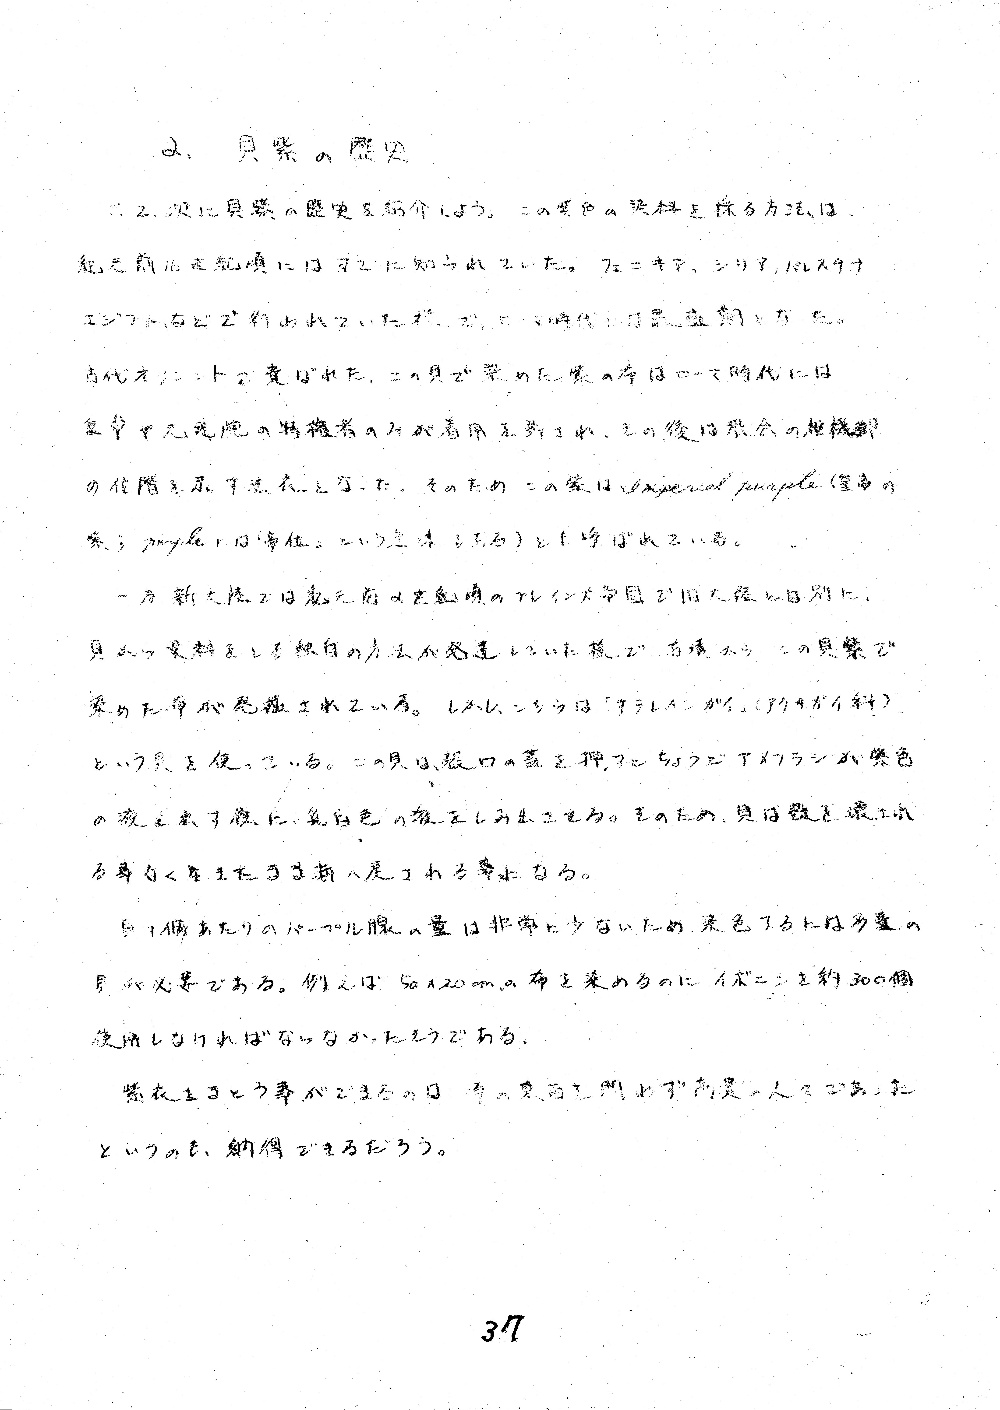 2. 貝紫の歴史
2. 次に貝紫の歴史を紹介しよう。この紫色の染料を採る方法は、
紀元前16世紀頃にはすでに知られていた。フェニキア、シリア、パレスタナ
エジプトなどで行われていたが、ローマ時代には最盛期となった。
古代オリエントで貴ばれた、この貝で染めた紫の布はローマ時代には
皇帝や元老院の特権者のみが着用を許され、その後は教会の
の位階を示す法衣となった。そのためこの紫は Imperial purple (皇帝の
紫; purple には「帝位」という意味もある) とも呼ばれている。
一方新大陸では紀元前2世紀頃のプレインカ帝国で旧大陸とは別に、
貝から染料をとる独自の方法が発達していた様で、古墳から、この貝紫で
染めた布が発掘されている。しかし、こちらは「ヒラレイシガイ」(アクキガイ科)
という貝を使っている。この貝は、殻口の蓋を押すとちょうどアメフラシが紫色
の液を出す様に、乳白色の液をしみ出させる。そのため、貝は殻を壊され
る事なく生きたまま海へ戻される事になる。
貝1個あたりのパープル腺の量は非常に少ないため、染色するには多量の
貝が必要である。例えば 50×20cmの布を染めるのにイボニシを約300個
使用しなければならなかったそうである。
紫衣をまとう事ができるのは、洋の東西を問わず高貴な人々であった
というのも、納得できるだろう。
37